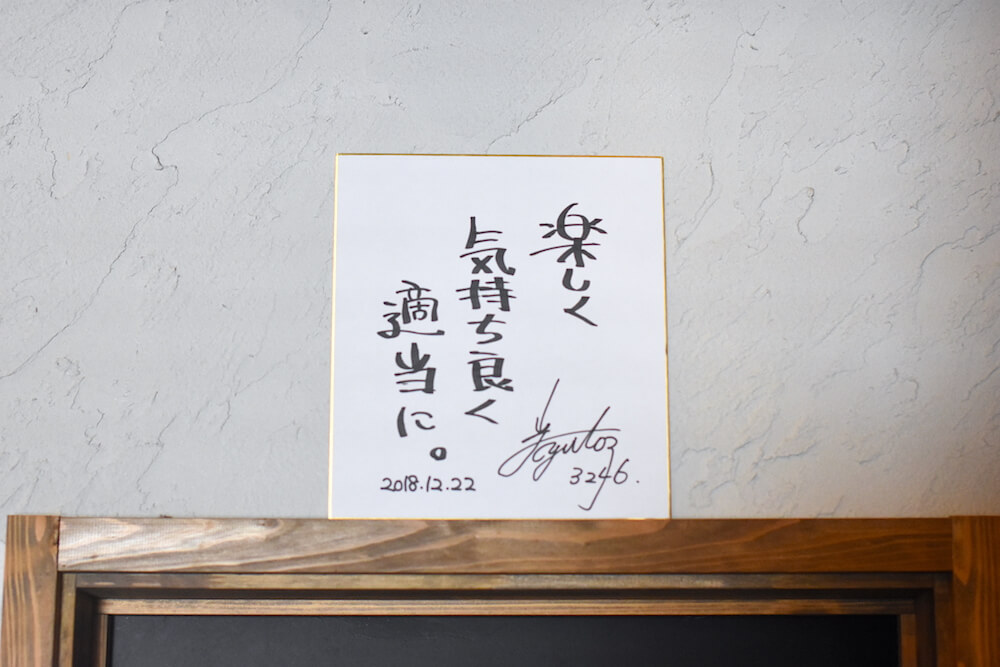 楽しく
気持ち良く
適当に。
2018.12.22
3246.